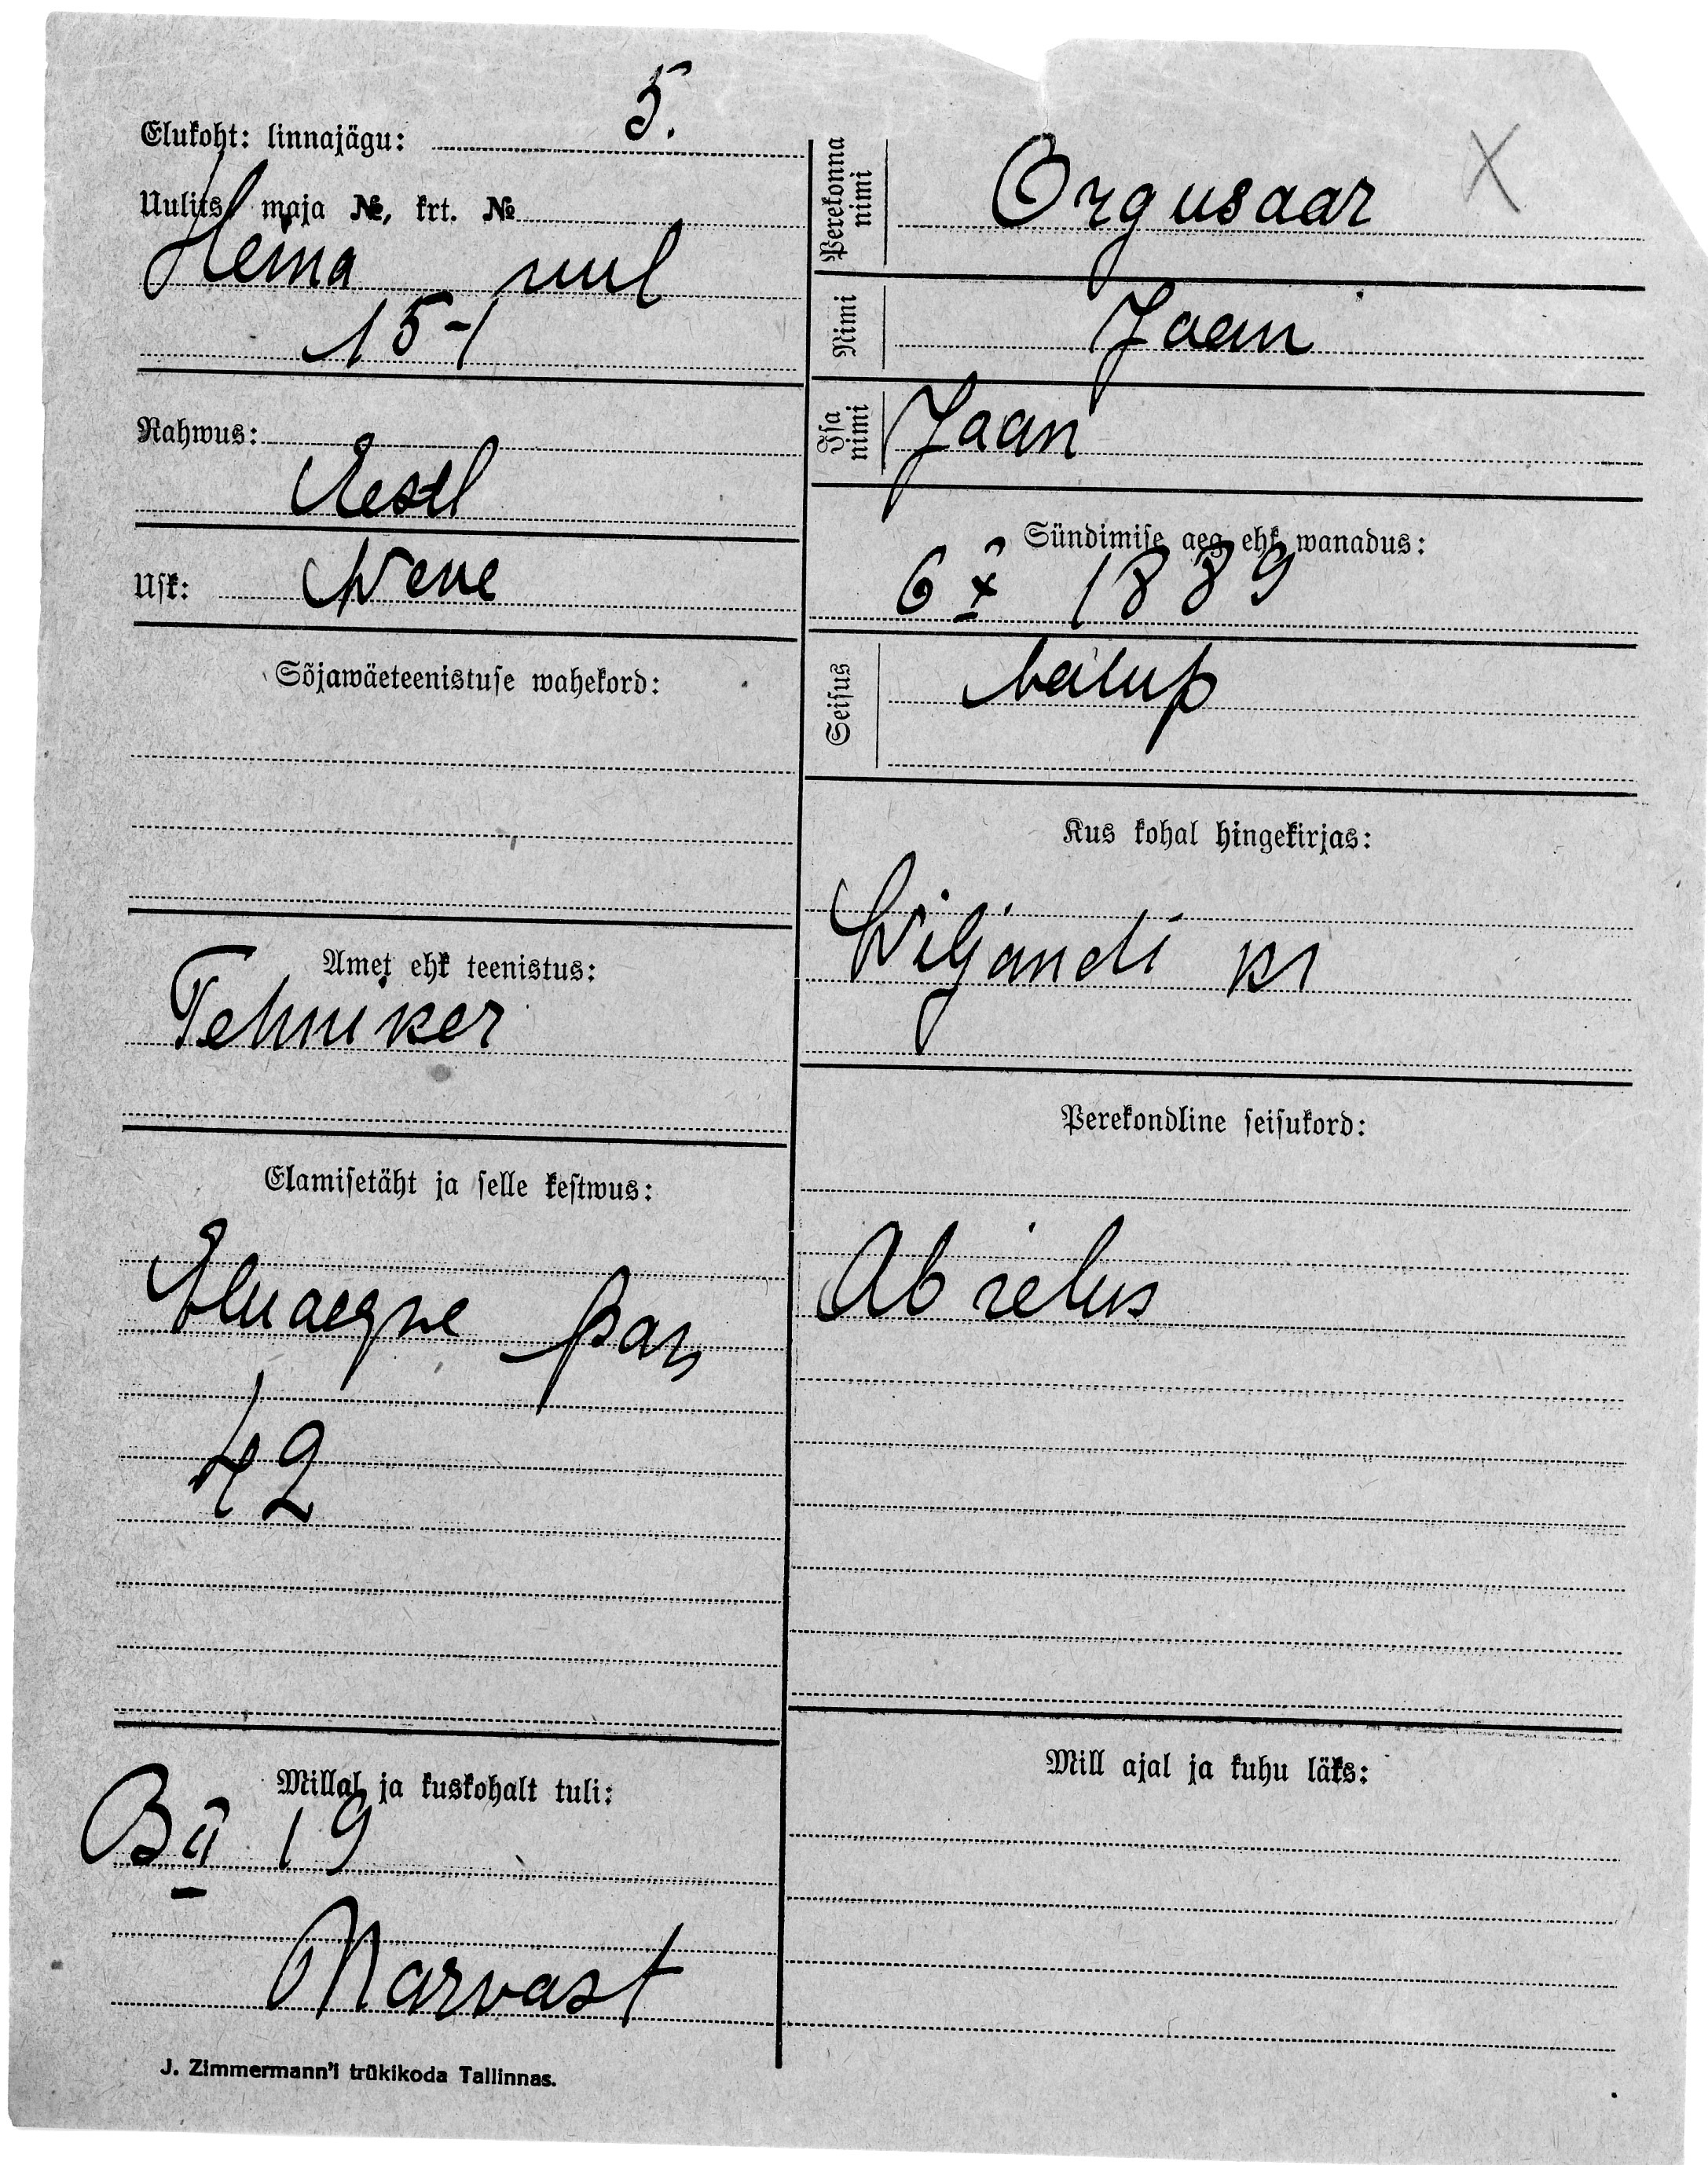 Elukoht: linnajägu: 5.
Uulits, maja №, krt. №
Heina uul
15-1
Rahwus:
Eestl
Usk: Wene
Sõjawäeteenistuse wahekord:
Amet ehk teenistus:
Tehniker
Elamisetäht ja selle kestwus:
Eluaegne pas
42
Millal ja kuskohalt tuli:
19
Narvast
J. Zimmermann'i trükikoda Tallinnas.
Perekonna nimi
Orgusaar
X
Nimi
Jaan
Isa nimi
Jaan
Sündimise aeg ehk wanadus:
6 X 1889
Seisus
talup
Kus kohal hingekirjas:
Wiljandi kr
Perekondline seisukord:
Abielus
Mill ajal ja kuhu läks: